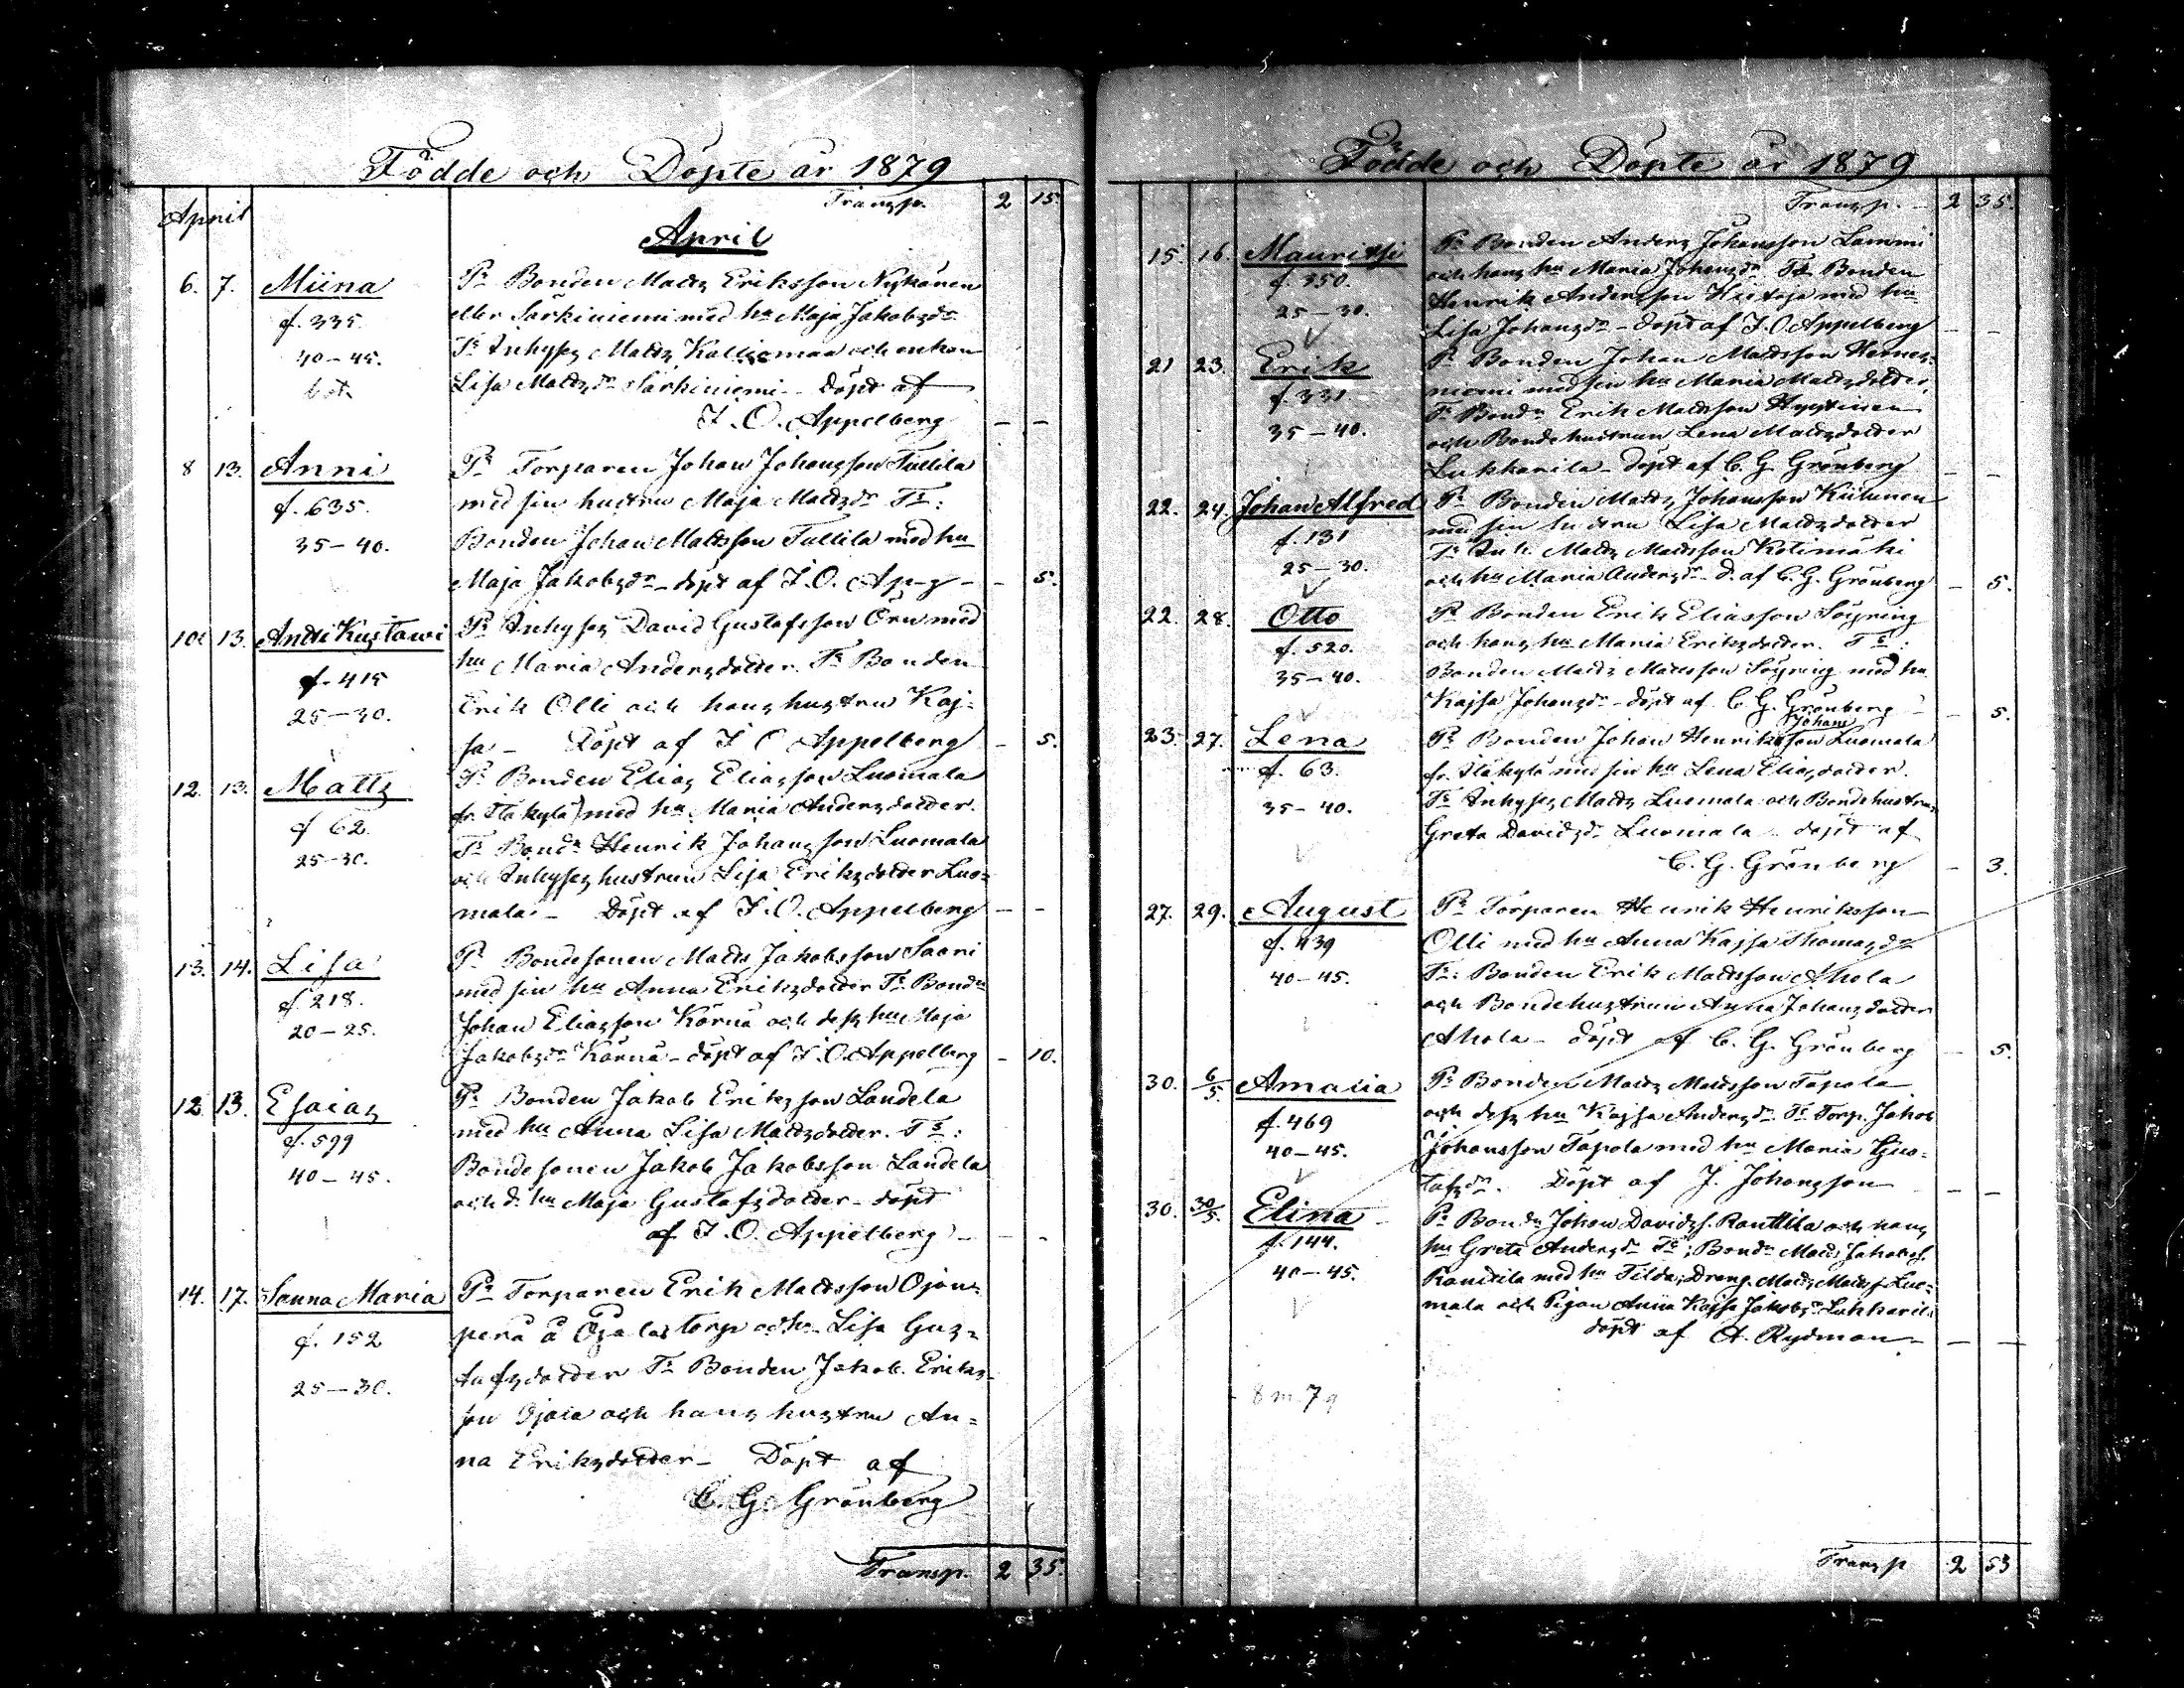 Födde och Döpte år 1879
Transp. 2 15
April
April
6. 7. Miina Pr Bonden Matts Eriksson Nykänen
f. 335. eller Särkiniemi med hu Maja Jakobsdr
40-45. Tr Inhyses Matts Kalliomaa och enkan
Lisa Mattsdr Särkiniemi - Döpt af
J. O. Appelberg - -
8 13. Anni Pr Torparen Johan Johansson Tullila
f. 635. med sin hustru Maja Mattsdr Tr:
35-40. Bonden Johan Mattsson Tullila med hu
Maja Jakobsdr - döpt af J. O. Ap-g - - 5.
10 13. Antti Kustawi Pr Inhyses David Gustafsson Örn med
f. 415 hu Maria Andersdotter. Tr Bonden
25-30. Erik Olli och hans hustru Kaj-
sa - Döpt af J O Appelberg - 5.
12. 13. Matts Pr Bonden Elias Eliasson Luomala
f 62. fr. Ilakylä) med hu Maria Andersdotter.
25-30. Tr Bondn Henrik Johansson Luomala
och Inhyses hustrun Lisa Eriksdotter Luo-
mala. - Döpt af J. O. Appelberg - -
13. 14. Lisa Pr Bondesonen Matts Jakobsson Saari
f. 218. med sin hu Anna Eriksdotter Tr Bondn
20-25. Johan Eliasson Körnä och dess hu Maja
Jakobsdr Körnä - döpt af J. O. Appelberg - 10.
12 13. Esaias Pr Bonden Jakob Eriksson Landela
f. 599 med hu Anna Lisa Mattsdotter. Tr:
40-45. Bondesonen Jakob Jakobsson Landela
och d. hu Maja Gustafsdotter - döpt
af J. O. Appelberg - - -
14. 17. Sanna Maria Pr Torparen Erik Mattsson Ojan-
f. 152 perä å Ojala torp och hu Lisa Gus-
25-30. tafsdotter Tr Bonden Jakob Eriks-
son Ojala och hans hustru An-
na Eriksdotter - Döpt af
C. G. Grönberg
Transp. 2 35.
Födde och Döpte år 1879
Transp. - 2 35.
15. 16. Mauritsi Pr Bonden Anders Johansson Lammi
f. 350. och hans hu Maria Johansdr Tr Bonden
25-30. Henrik Andersson med hu
Lisa Johansdr - döpt af J. O. Appelberg - -
21 23. Erik Pr Bonden Johan Mattsson Hernes-
f. 331 niemi med sin hu Maria Mattsdotter.
35-40. Tr Bondn Erik Mattsson Hyytinen
och Bondehustrun Lena Mattsdotter
Lukkarila - döpt af C. G. Grönberg - -
22. 24. Johan Alfred Pr Bonden Matts Johansson Kiilunen
f. 131 med sin hustru Lisa Mattsdotter
25-30. Tr Inh. Matts Mattsson Kotimäki
och hu Maria Andersdr - d. af C. G. Grönberg - 5.
22. 28. Otto Pr Bonden Erik Eliasson Söyring
f. 520. och hans hu Maria Eriksdotter. Tr:
35-40. Bonden Matts Mattsson Söyring med hu
Kajsa Johansdr - döpt af C. G. Grönberg - - 5.
Johans
23. 27. Lena Pr Bonden Johan Henriksson Luomala
f. 63. fr. Ilakylä med sin hu Lena Eliasdotter.
35-40. Tr Inhyses Matts Luomala och Bondehustrun
Greta Davidsdr Luomala - döpt af
C. G. Grönberg - 3.
27. 29. August Pr Torparen Henrik Henriksson
f. 439 Olli med hu Anna Kajsa Thomasdr
40-45. Tr: Bonden Erik Mattsson Ahola
och Bondehustrun Anna Johansdotter
Ahola - döpt af C. G. Grönberg - 5.
30. 6/5 Amalia Pr Bonden Matts Mattsson Tapola
f. 469 och dess hu Kajsa Andersdr Tr Torp. Jakob
40-45. Johansson Tapola med hu Maria Gus-
tafsdr. Döpt af J. Johansson - -
30. 30/5. Elina Pr Bondn Johan Davidss. Ranttila och hans
f. 144. hu Greta Andersdr Tr: Bondn Matts Jakobss.
40-45. Ranttila med hu Tilda; Dreng. Matts Mattss. Luo-
mala och Pigan Anna Kajsa Jakobsdr Lukkarila
döpt af A. Rydman - - -
8 m. 7 q
Transp 2 53